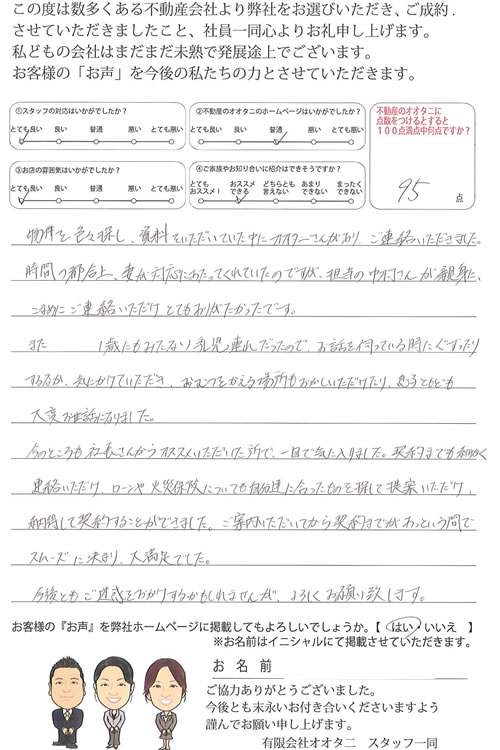 この度は数多くある不動産会社より弊社をお選びいただき、ご成約
させていただきましたこと、社員一同心よりお礼申し上げます。
私どもの会社はまだまだ未熟で発展途上でございます。
お客様の「お声」を今後の私たちの力とさせていただきます。
①スタッフの対応はいかがでしたか?
とても良い 良い 普通 悪い とても悪い
②不動産のオオタニのホームページはいかがでしたか?
とても良い 良い 普通 悪い とても悪い
③お店の雰囲気はいかがでしたか?
とても良い 良い 普通 悪い とても悪い
④ご家族やお知り合いに紹介はできそうですか?
とてもオススメ! オススメできる どちらとも言えない あまりできない まったくできない
不動産のオオタニに
点数をつけるとすると
100点満点中何点ですか?
95 点
物件を色々探し、資料をいただいていた中にオオタニさんがあり、ご連絡いただきました。
時間の都合上、妻が対応にあたってくれていたのですが、担当の中村さんが親身に、
こまめにご連絡いただけとてもありがたかったです。
また 1歳にもみたない乳児連れだったので、お話を伺っている時にぐずったり
するなか、気にかけていただき、おむつをかえる場所もおかしいただけたり、息子ともども
大変お世話になりました。
今のところも社長さんからオススメいただいた所で、一目で気に入りました。契約までも細かく
連絡いただけ、ローンや火災保険についても自分達に合ったものを探して提案いただけ、
納得して契約することができました。ご案内いただいてから契約までがあっという間で
スムーズに決まり、大満足でした。
今後ともご迷惑をおかけするかもしれませんが、よろしくお願い致します。
お客様の『お声』を弊社ホームページに掲載してもよろしいでしょうか。【 はい・いいえ 】
※お名前はイニシャルにて掲載させていただきます。
お名前
ご協力ありがとうございました。
今後とも末永いお付き合いくださいますよう
謹んでお願い申し上げます。
有限会社オオタニ スタッフ一同